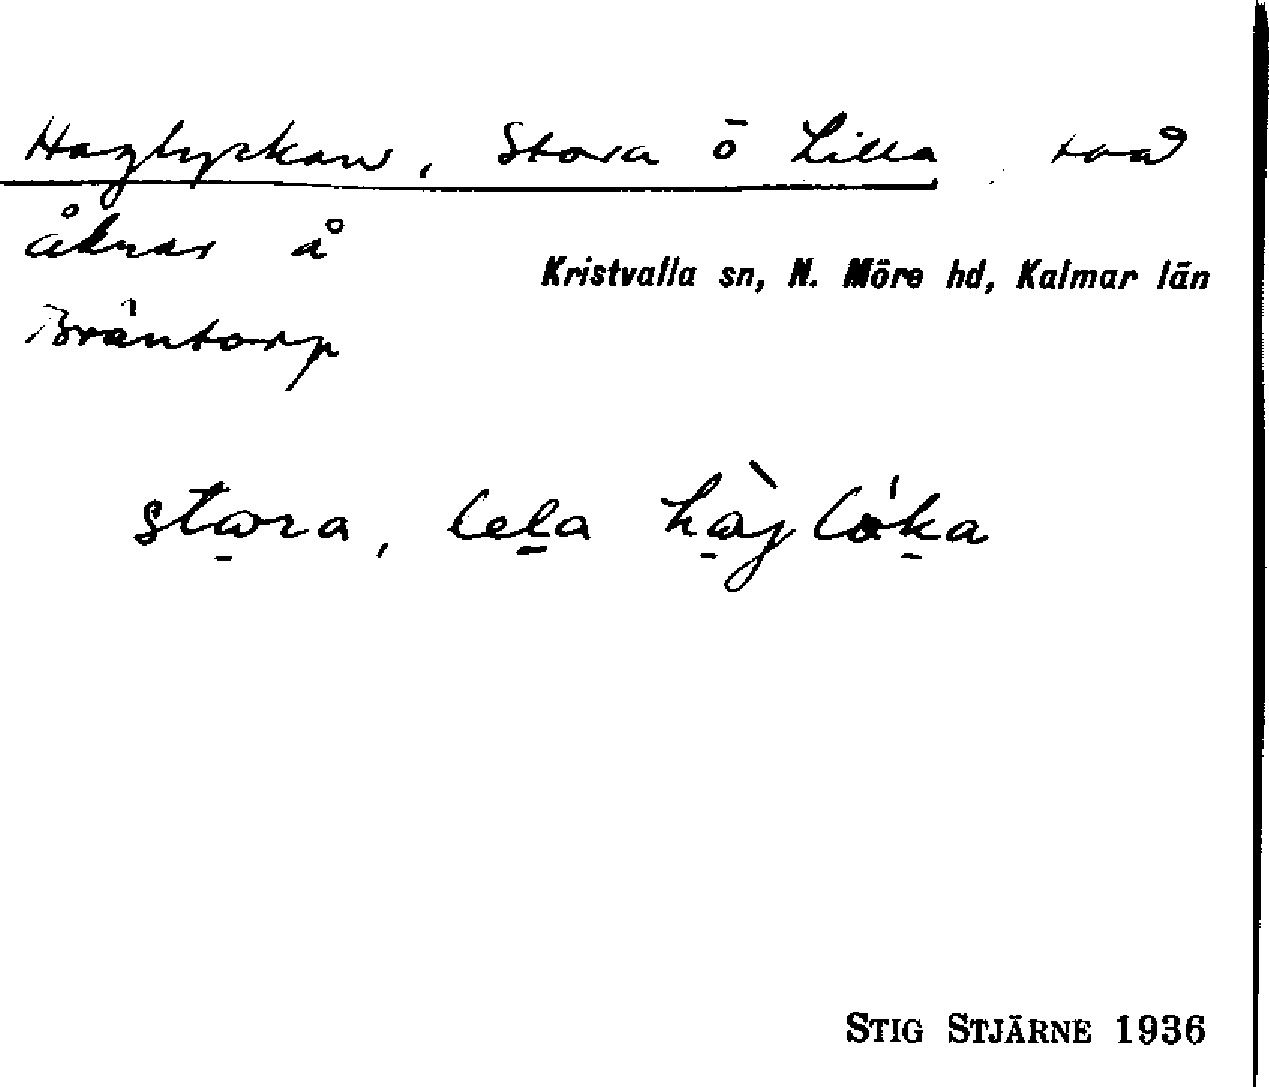 Haglyckan, Stora o Lilla två
åkrar å
Kristvalla sn, N. Möre hd, Kalmar län
Bräntorp
stora, lela
STIG STJÄRNE 1936